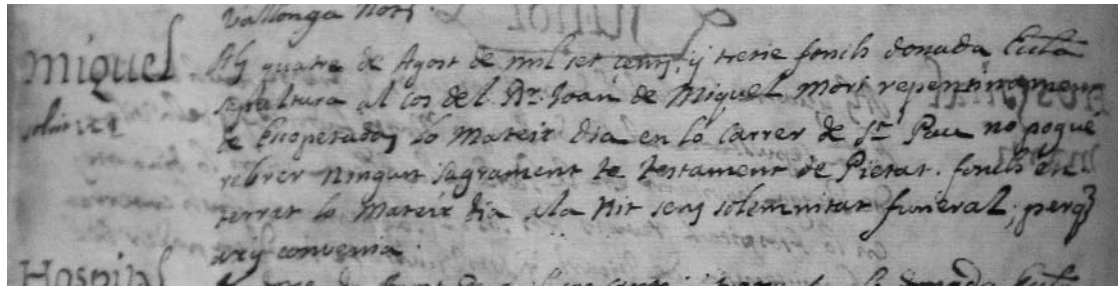 Vallonga Nots.
Miquel Als quatre de Agost de mil set cents, y treze fonch donada Ecca.
sepultura al cos del Dr. Joan de Miquel mori repentinament
lo mateix dia en lo carrer de St. Pau no pogue
rebrer ningun sagrament te testament de Pietat. fonch en
terrat lo mateix dia a la Nit sens solemnitat funeral, perq
axi convenia.
Hospital de donada